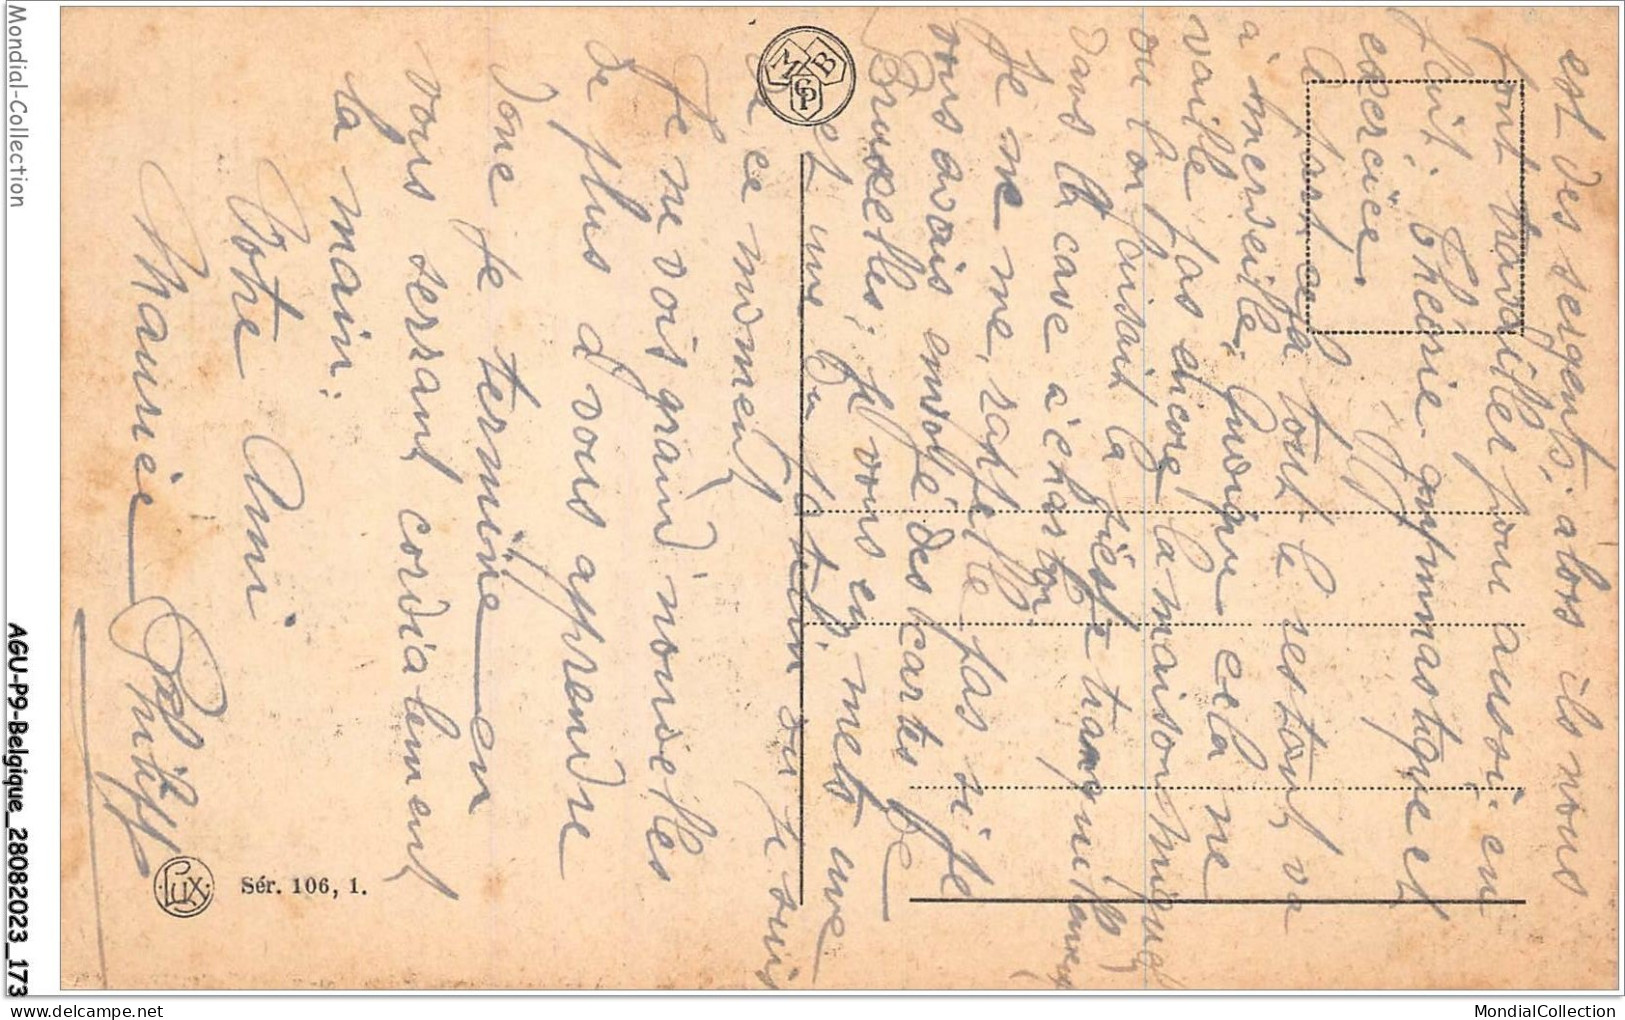 est des sergents; alors ils nous
font travailler pour aussi en
plein. Théorie gymnastique et
exercices.
A part cela tout le reste va
à merveille, quoique cela ne
vaille pas encore la maison
ou l'on faisait la fiesta tranquillement
dans la case à
Je me rappelle pas si je
vous avais envoyé des cartes de
Bruxelles; je vous en mets une
et une du où je suis
en ce moment
Je ne vois grand nouvelles
de plus à vous apprendre
donc je termine en
vous serrant cordialement
la main.
Votre Ami
Maurice
MBCP
Lux
Sér. 106, 1.
Mondial-Collection
AGU-P9-Belgique_28082023_173
MondialCollection